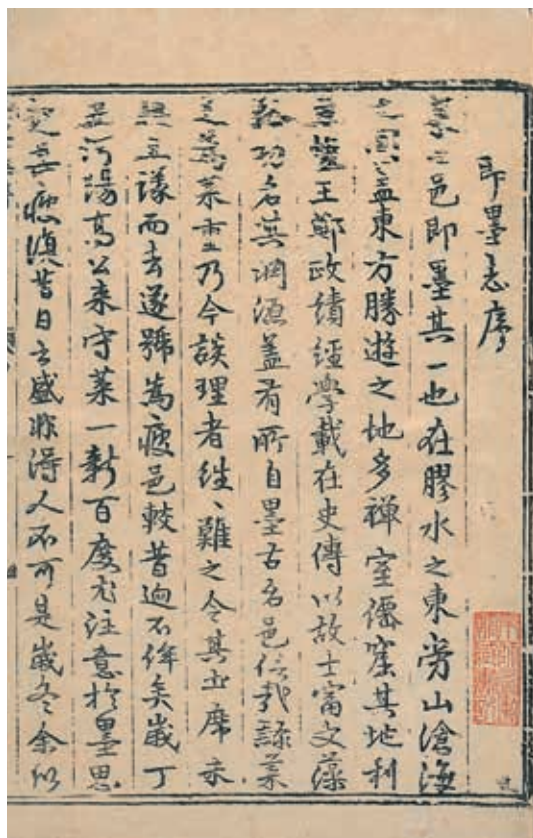 即墨志序
萊之邑即墨其一也在膠水之東旁山滄海
之間蓋東方勝遊之地多禪室僊窟其地利
鹽王鄭政績經學載在史傳以故士富文藻
功名其淵源蓋有所自墨古名邑信哉萊
之為萊重乃今談理者往〻難之令其土席未
而去遂號為疲邑較昔迥不侔矣歲丁
丑河陽高公來守萊一新百度尤注意於墨思
復昔日之盛非得人不可是歲冬余以